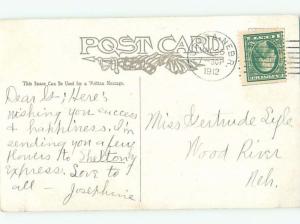 POST CARD
NEBR.
1912
This Space Can be Used for a Written Message.
Dear G—; Here's
wishing you success
& happiness. I'm
sending you a few
flowers to Shelton
Express. Love to
all — Josephine
Miss Gertrude Lyle
Wood River
Neb.